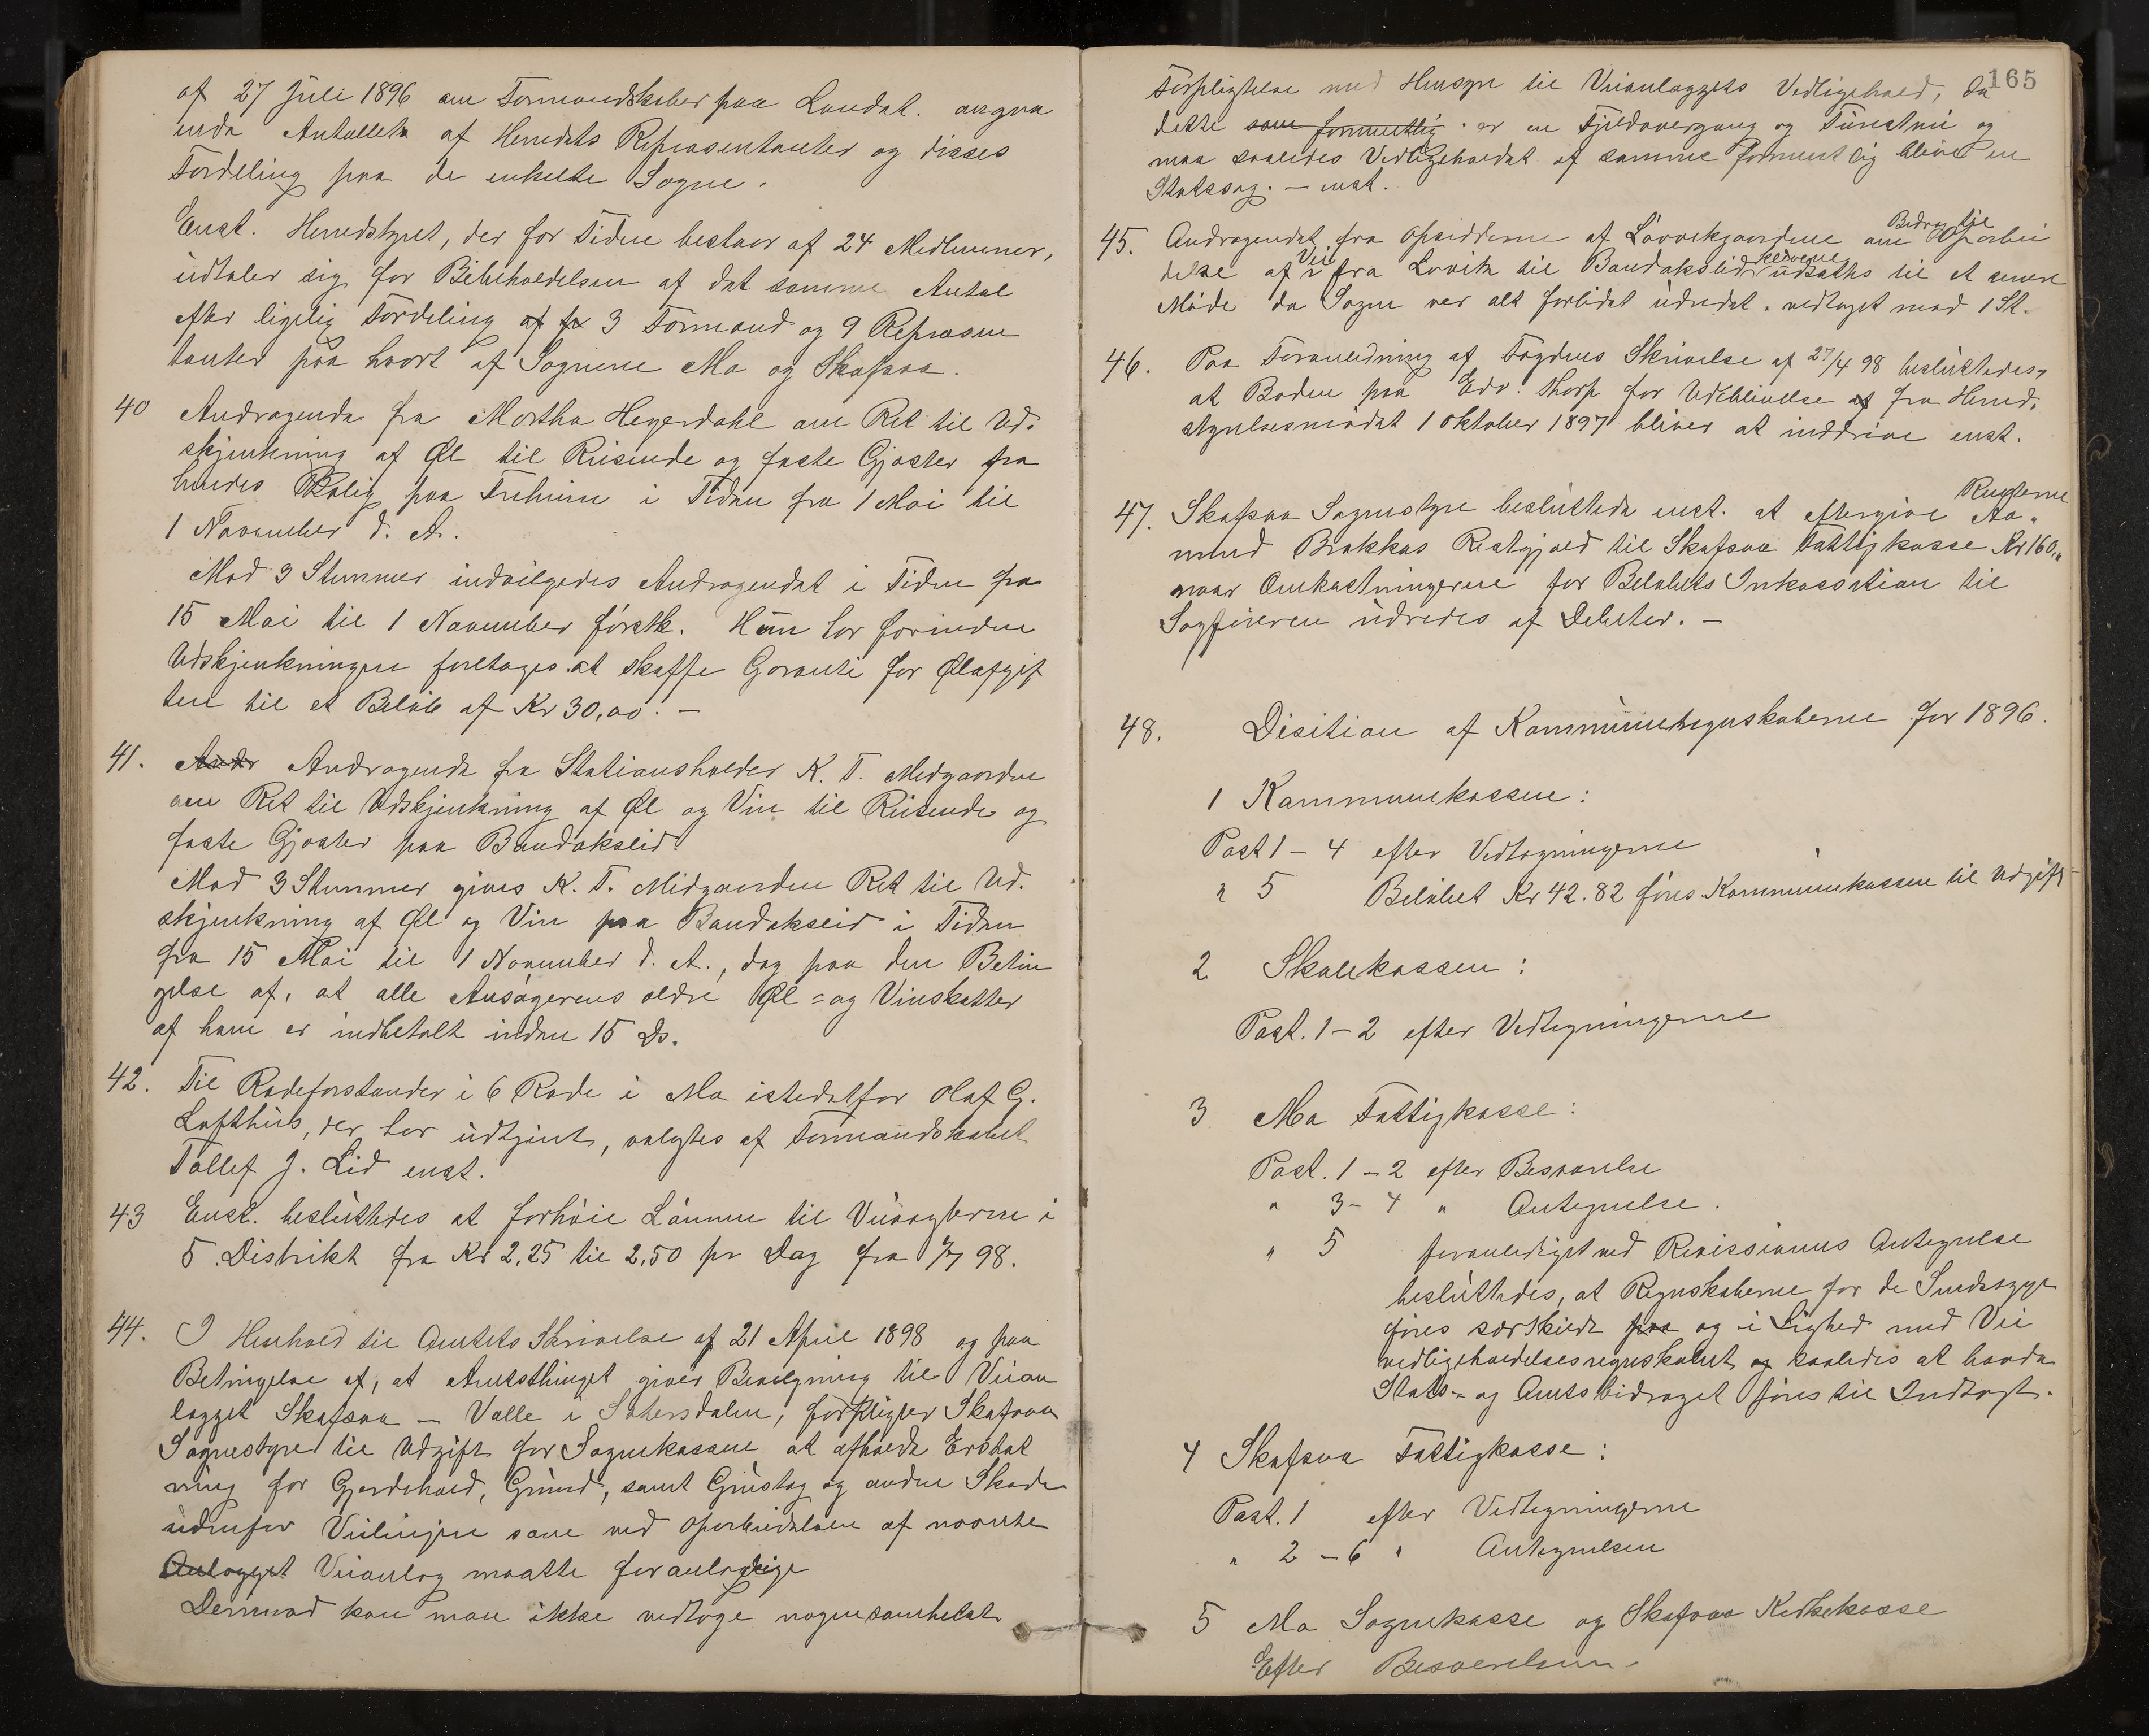 af 27 Juli 1896 om Formandskaber paa Landet. angaa
ende Antallet af Herredets Repræsentanter og disses
Fordeling paa de enkelte Sogne.
Enst. Herredstyret, der for Tiden bestaar af 24 Medlemmer,
udtaler sig for Bibeholdelsen af det samme Antal
efter ligelig Fordeling af 3 Formænd og 9 Repræsen
tanter paa hvert af Sognene Mo og Skafsaa.
40 Andragende fra Martha Hegerdahl om Ret til Ud-
skjenkning af Øl til Reisende og faste Gjæster fra
hendes Bolig paa i Tiden fra 1 Mai til
1 November d. A.
Mod 3 Stemmer indvilgedes Andragendet i Tiden fra
15 Mai til 1 November førstk. Hun har forinden
Udskjenkningen foretages at skaffe Garanti for Ølafgif
ten til et Beløb af Kr 30,00. —
41. Andr Andragende fra Stationsholder K. T. Midgaarden
om Ret til Udskjenkning af Øl og Vin til Reisende og
faste Gjæster paa Bandakseid.
Mod 3 Stemmer gives K. T. Midgaarden Ret til Ud-
skjenkning af Øl og Vin paa Bandakseid i Tiden
fra 15 Mai til 1 November d. A., dog paa den Betin
gelse af, at alle Ansøgerens ældre Øl- og Vinskatter
af ham er indbetalt inden 15 Ds.
42. Til Rodeforstander i 6 Rode i Mo istedetfor Olaf G.
Lofthus, der har udtjent, valgtes af Formandskabet
Tollef J. Lid enst.
43 Enst. besluttedes at forhøie Lønnen til Veivogterne i
5 Distrikt fra Kr 2,25 til 2,50 pr Dag fra 1/7 98.
44. I Henhold til Amtets Skrivelse af 21 April 1898 og paa
Betingelse af, at Amtsthinget giver Bevilgning til Veian
lægget Skafsaa — Valle i Sætersdalen, forpligter Skafsaa
Sognestyre til Udgift for Sognekassen at afholde Erstat
ning for Gjerdehold, Grund, samt Grustag og anden Skade
udenfor Veilinjen som ved Oparbeidelsen af nævnte
Anlægget Veianlæg maatte foranledige
Derimod kan man ikke vedtage nogensomhelst
165
Forpligtelse med Hensyn til Veianlæggets Vedligehold, da
dette som formentlig er en Fjeldovergang og Turistvei og
maa saaledes Vedligeholdet af samme formentlig blive en
Statssag. — enst.
45. Andragendet fra Opsidderne af Lavvikgaardene om Bidrag til Oparbei
delse af Vei fra Lovik til Bandakslid udsattes til et senere
Møde da Sagen var alt forlidet udredet. vedtaget mod 1 St.
46. Paa Foranledning af Fogdens Skrivelse af 27/4 98 besluttedes,
at Boden paa Edv. Thorp for Udeblivelse af fra Herred-
styrelsesmødet 1 Oktober 1897 bliver at inddrive enst.
47. Skafsaa Sognestyre besluttede enst. at eftergive Renterne Aa-
mund Brekkas Restgjæld til Skafsaa Fattigkasse Kr 160,,
naar Omkostningerne for Beløbets Inkassation til
Sagføreren udredes af Debitor. —
48. Disition af Kommuneregnskaberne for 1896.
1 Kommunekassen:
Post 1 - 4 efter Vedtegningerne
" 5 Beløbet Kr 42.82 føres Kommunekassen til Udgift
2 Skolekassen:
Post. 1 - 2 efter Vedtegningerne
3 Mo Fattigkasse:
Post. 1 - 2 efter Besvarelse
" 3 - 4 " Antegnelse.
" 5 foranlediget ved Revisionens Antegnelse
besluttedes, at Regnskaberne for de Sindssyge
føres særskildt paa og i Lighed med Vei
vedligeholdelsesregnskabet og saaledes at baade
Stats- og Amtsbidraget føres til Indtægt.
4 Skafsaa Fattigkasse:
Post. 1 efter Vedtegningerne
" 2 - 6 " Antegnelsen
5 Mo Sognekasse og Skafsaa Kirkekasse
Efter Besvarelsen.